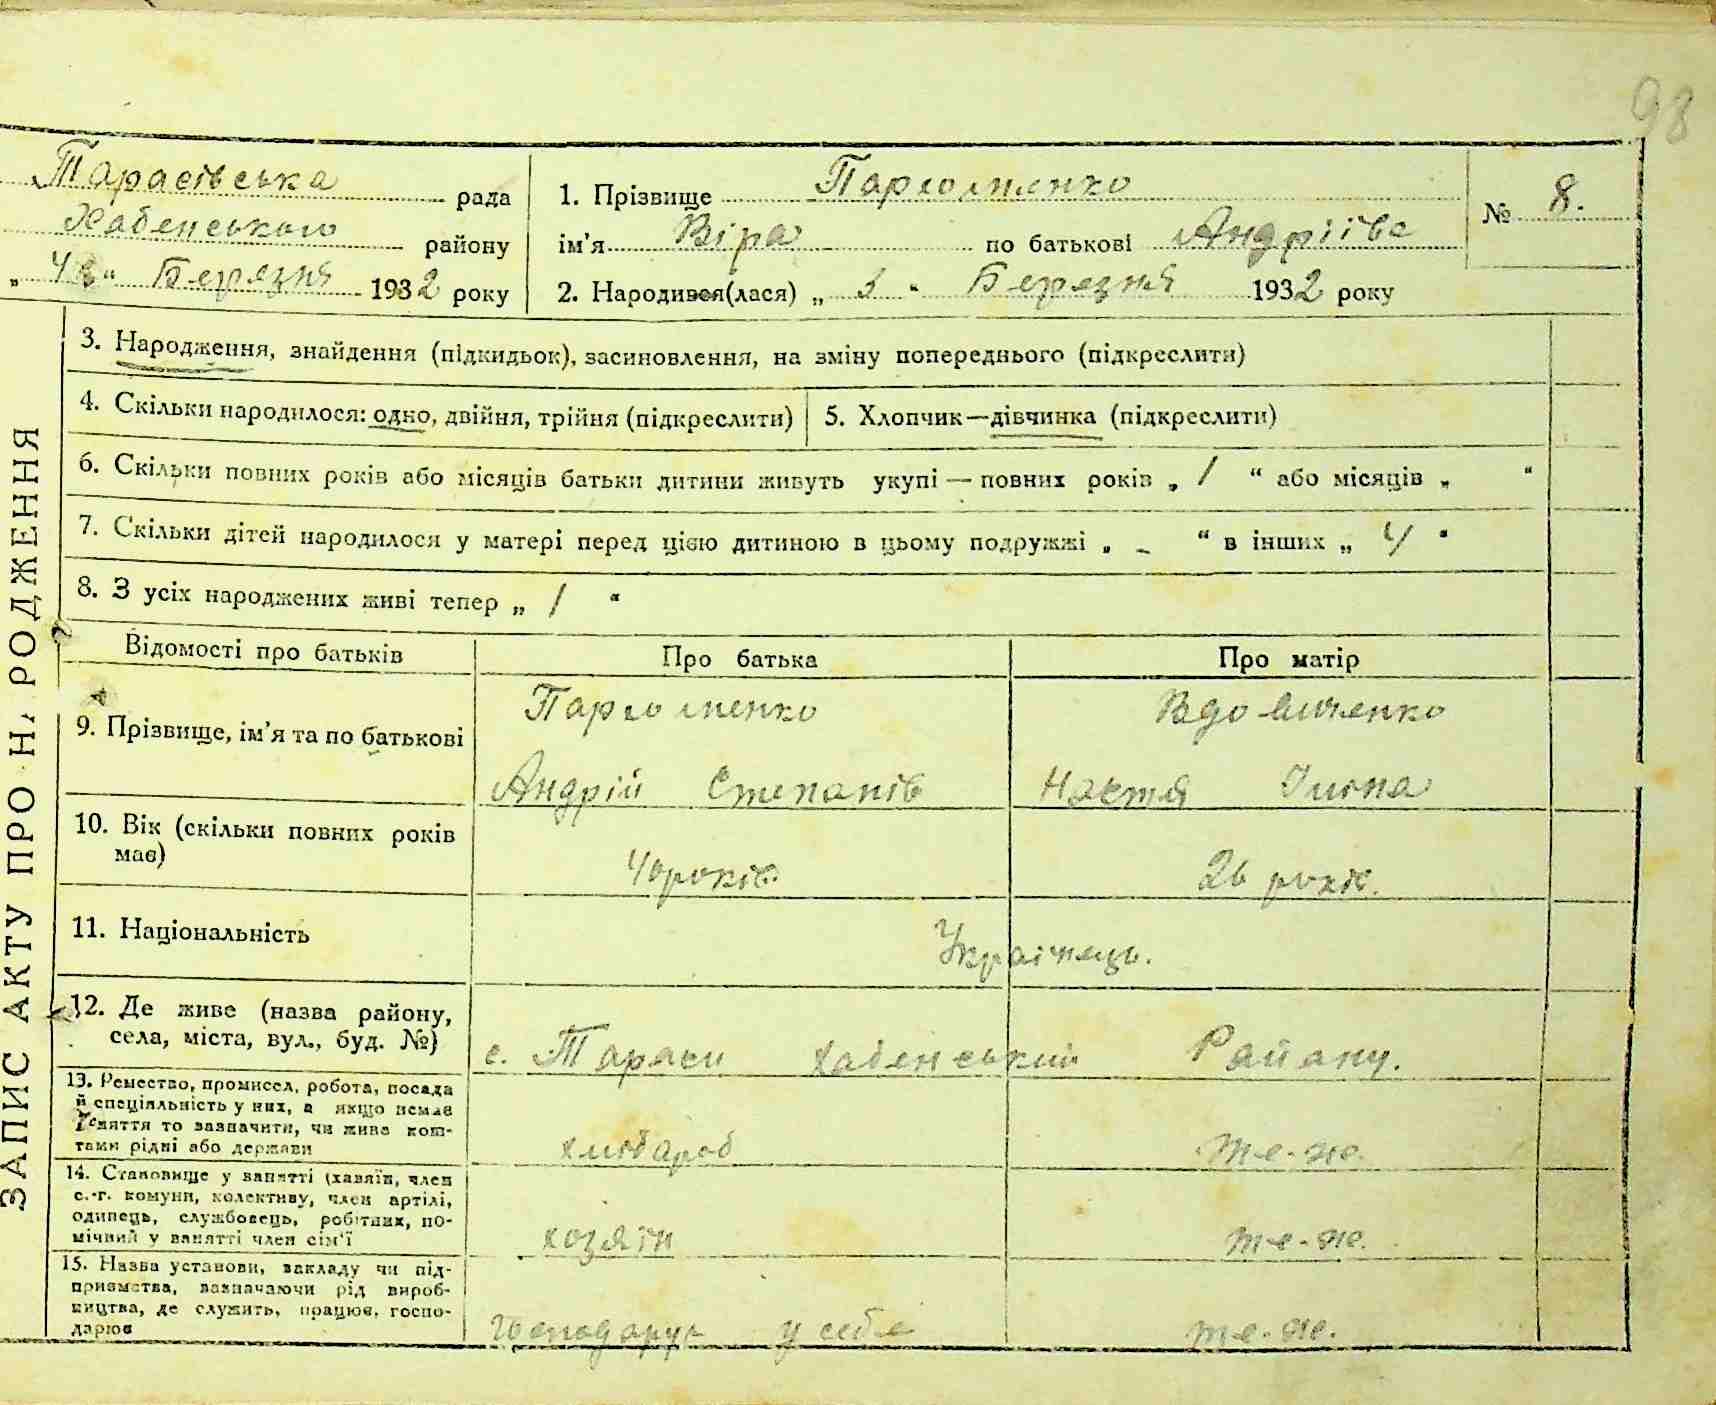 98
Тарасівська рада
Хабенського району
„ “ Березня 1932 року
1. Прізвище Пархоменко
ім’я Віра по батькові Андріївс
№ 8.
2. Народився(лася) „ “ Березня 1932 року
ЗАПИС АКТУ ПРО НАРОДЖЕННЯ
3. Народження, знайдення (підкидьок), засиновлення, на зміну попереднього (підкреслити)
4. Скільки народилося: одно, двійня, трійня (підкреслити)
5. Хлопчик—дівчинка (підкреслити)
6. Скільки повних років або місяців батьки дитини живуть укупі — повних років „ 1 “ або місяців „ “
7. Скільки дітей народилося у матері перед цією дитиною в цьому подружжі „ - “ в інших „ 4 “
8. З усіх народжених живі тепер „ 1 “
Відомості про батьків
Про батька
Про матір
9. Прізвище, ім’я та по батькові
Пархоменко
Вдовиченко
Андрій Степанів
Настя
10. Вік (скільки повних років
має)
років
26 років.
11. Національність
Українець.
12. Де живе (назва району,
села, міста, вул., буд. №)
с. Тараси Хабенський Району.
13. Ремество, промисел, робота, посада
й спеціяльність у них, а якщо немає
заняття то зазначити, чи живе кош-
тами рідні або держави
хлібароб
те-же.
14. Становище у занятті (хазяїн, член
с.-г. комуни, колективу, член артілі,
одинець, службовець, робітник, по-
мічний у занятті член сім’ї
хозяїн
те-же.
15. Назва установи, закладу чи під-
приємства, зазначаючи рід вироб-
ництва, де служить, працює, госпо-
дарює
господарує у себе
те-же.